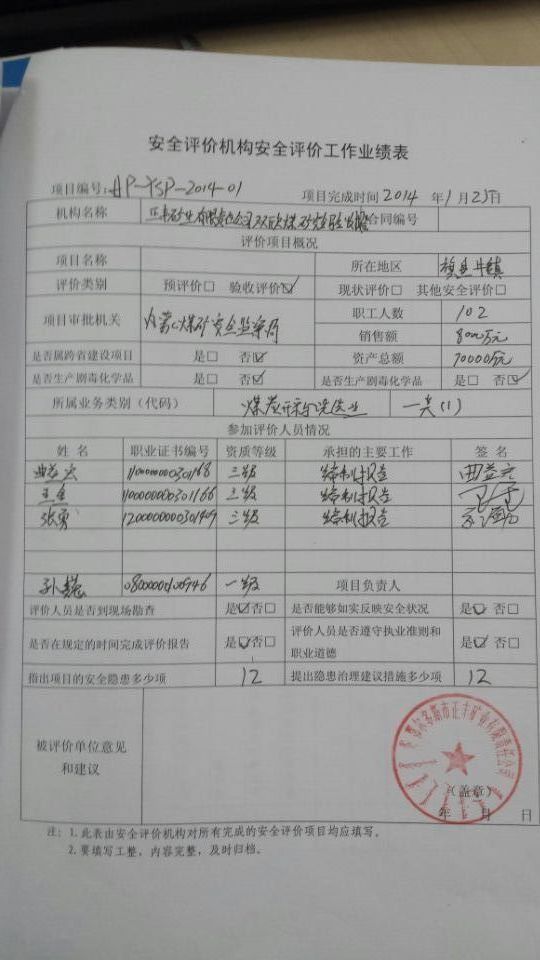 安全评价机构安全评价工作业绩表
项目编号:AP-YSP-2014-01 项目完成时间 2014 年 1 月 23 日
机构名称 合同编号
评价项目概况
项目名称 所在地区
评价类别 预评价□ 验收评价☑ 现状评价□ 其他安全评价□
项目审批机关 内蒙古煤矿安全监察局 职工人数 102
销售额 8000万元
是否属跨省建设项目 是□ 否☑ 资产总额 70000万元
是否生产剧毒化学品 是□ 否☑ 是否生产剧毒化学品 是□ 否☑
所属业务类别（代码） 煤炭开采和洗选业 一类(1)
参加评价人员情况
姓 名 职业证书编号 资质等级 承担的主要工作 签 名
三级 编制报告
三级 编制报告
张勇 三级 编制报告
一级 项目负责人
评价人员是否到现场勘查 是☑否□ 是否能够如实反映安全状况 是☑ 否□
是否在规定的时间完成评价报告 是☑否□ 评价人员是否遵守执业准则和
职业道德 是☑ 否□
指出项目的安全隐患多少项 12 提出隐患治理建议措施多少项 12
被评价单位意见
和建议
鄂尔多斯市正丰矿业有限责任公司
（盖章）
年 月 日
注: 1.此表由安全评价机构对所有完成的安全评价项目均应填写。
2.要填写工整，内容完整，及时归档。